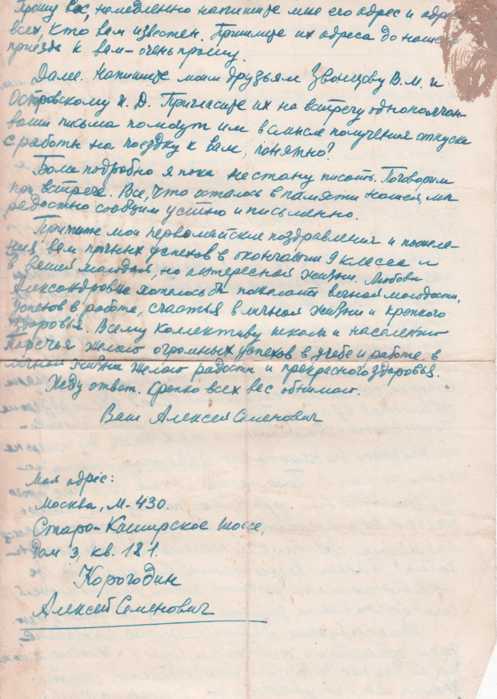 Прошу вас, немедленно напишите мне его адрес и адре
всех, кто вам известен. Пришлите их адреса до наше
приезда к вам – очень прошу.
Далее. Напишите моим друзьям Звонцову В. М. и
Островскому Н. Д. Пригласите их на встречу однополчан
ваши письма помогут им в смысле получения отпуска
с работы на поездку к вам, понятно?
Более подробно я пока не стану писать. Поговорим
при встрече. Все, что осталось в памяти нашей, мы
радостно сообщим устно и письменно.
Примите мои первомайские поздравления и пожела-
ния вам лучших успехов в окончании 9 класса и
в вашей молодой, но интересной жизни. Любови
Александровне хотелось бы пожелать вечной молодости,
успехов в работе, счастья в личной жизни и крепкого
здоровья. Всему коллективу школы и населению
Поречья желаю огромных успехов в учебе и работе, в
личной жизни желаю радости и прекрасного здоровья.
Жду ответ. Крепко всех вас обнимаю.
Ваш Алексей Семенович
Мой адрес:
Москва, М-430.
Старо-Каширское шоссе,
дом 3, кв. 121.
Корогодин
Алексей Семенович